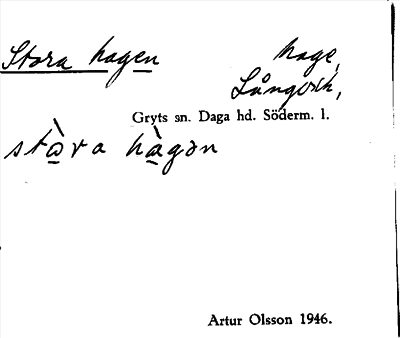 Stora hagen
hage,
Långvik,
Gryts sn. Daga hd. Söderm. l.
stɷ̀ra hàgən
Artur Olsson 1946.